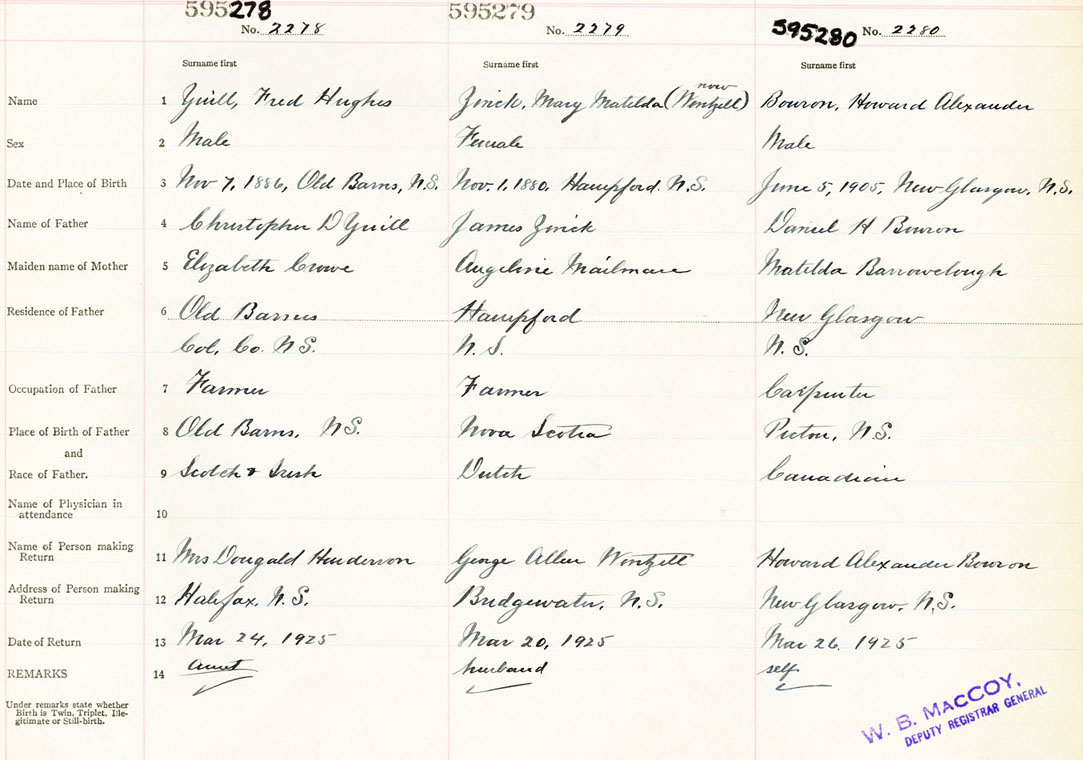 595278 595279 595280
No. 2278 No. 2279 No. 2280
Surname first Surname first Surname first
now
Name 1 Yuill, Fred Hughes Zinck, Mary Matilda (Wentzell) Bowron, Howard Alexander
Sex 2 Male Female Male
Date and Place of Birth 3 Nov 7, 1886, Old Barns, N.S. Nov. 1, 1880, Hampford. N.S. June 5, 1905, New Glasgow, N.S.
Name of Father 4 Christopher D Yuill James Zinck Daniel H Bowron
Maiden name of Mother 5 Elizabeth Crowe Angeline Mailman Matilda Barrowclough
Residence of Father 6 Old Barns Hampford New Glasgow
Col. Co. N.S. N.S. N.S.
Occupation of Father 7 Farmer Farmer Carpenter
Place of Birth of Father 8 Old Barns, N.S. Nova Scotia Pictou, N.S.
and
Race of Father. 9 Scotch & Irish Dutch Canadian
Name of Physician in
attendance 10
Name of Person making
Return 11 Mrs Dougald Henderson George Allen Wentzell Howard Alexander Bowron
Address of Person making
Return 12 Halifax, N.S. Bridgewater, N.S. New Glasgow, N.S.
Date of Return 13 Mar 24, 1925 Mar 20, 1925 Mar 26, 1925
REMARKS 14 aunt husband self
Under remarks state whether
Birth is Twin, Triplet, Ille-
gitimate or Still-birth.
W. B. MACCOY,
DEPUTY REGISTRAR GENERAL